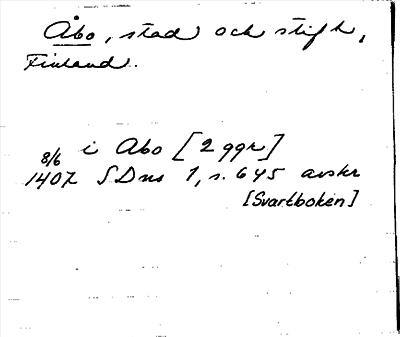 Åbo, stad och stift,
Finland.
8/6 i Åbo [2 ggr]
1407 SDns 1, s. 645 avskr
[Svartboken]